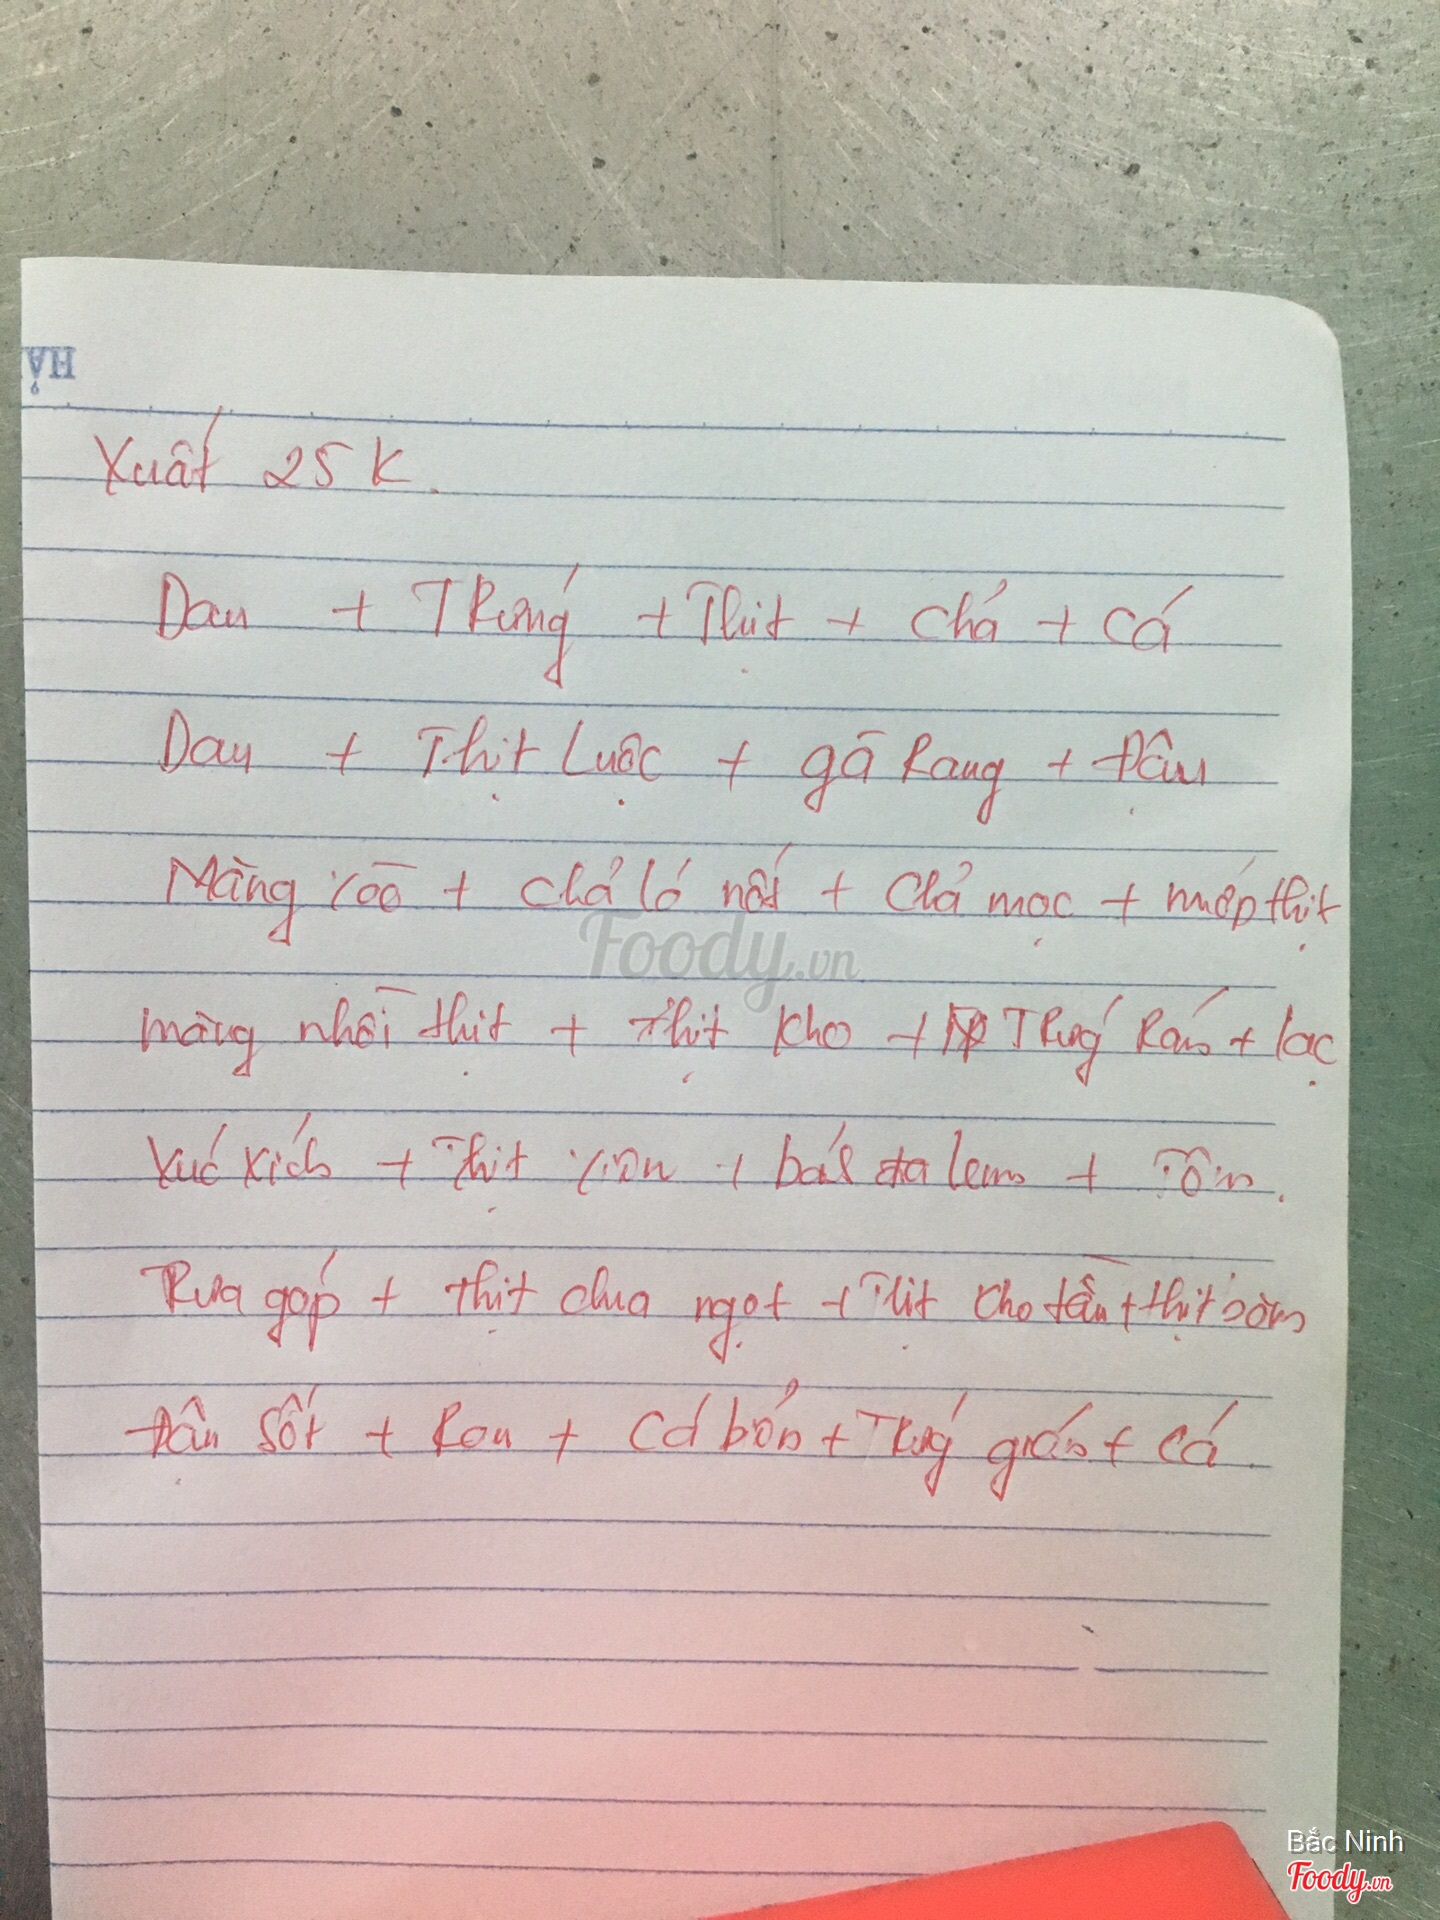 HẢ
Xuất 25K.
Dau + Trứng + Thịt + chả + cá
Dau + Thịt Luộc + gà Rang + Đậu
Măng + chả lá nốt + chả mọc + mướp thịt
măng nhồi thịt + thịt kho + Trứng Rán + lạc
Xúc xích + Thịt viên + bás sta lem + Tôm.
Rưa góp + thịt chua ngọt + Thịt cho tần + thịt
Đậu sốt + Rau + Cá bổn + Trứng gián + cá
Foody.vn
Bắc Ninh
Foody.vn